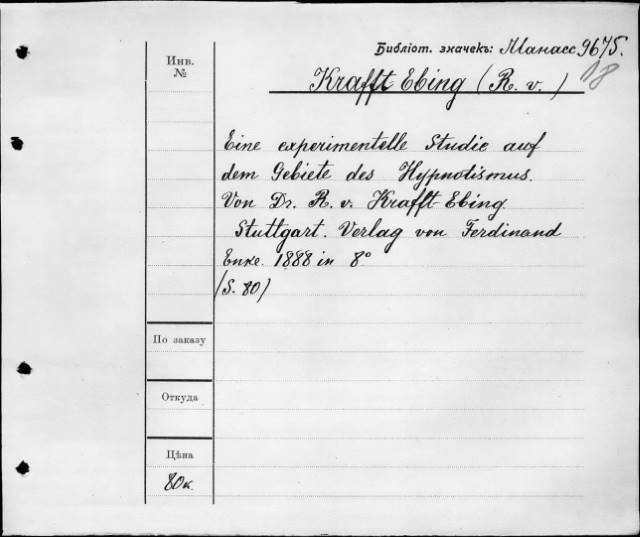 Библіот. значекъ: Манасс 9675.
18
Инв.
№
Krafft Ebing (R. v.)
Eine experimentelle Studie auf
dem Gebiete des Hypnotismus.
Von Dr. R. v. Krafft Ebing
Stuttgart. Verlag von Ferdinand
Enke. 1888 in 8°
(S. 80)
По заказу
Откуда
Цѣна
80к.